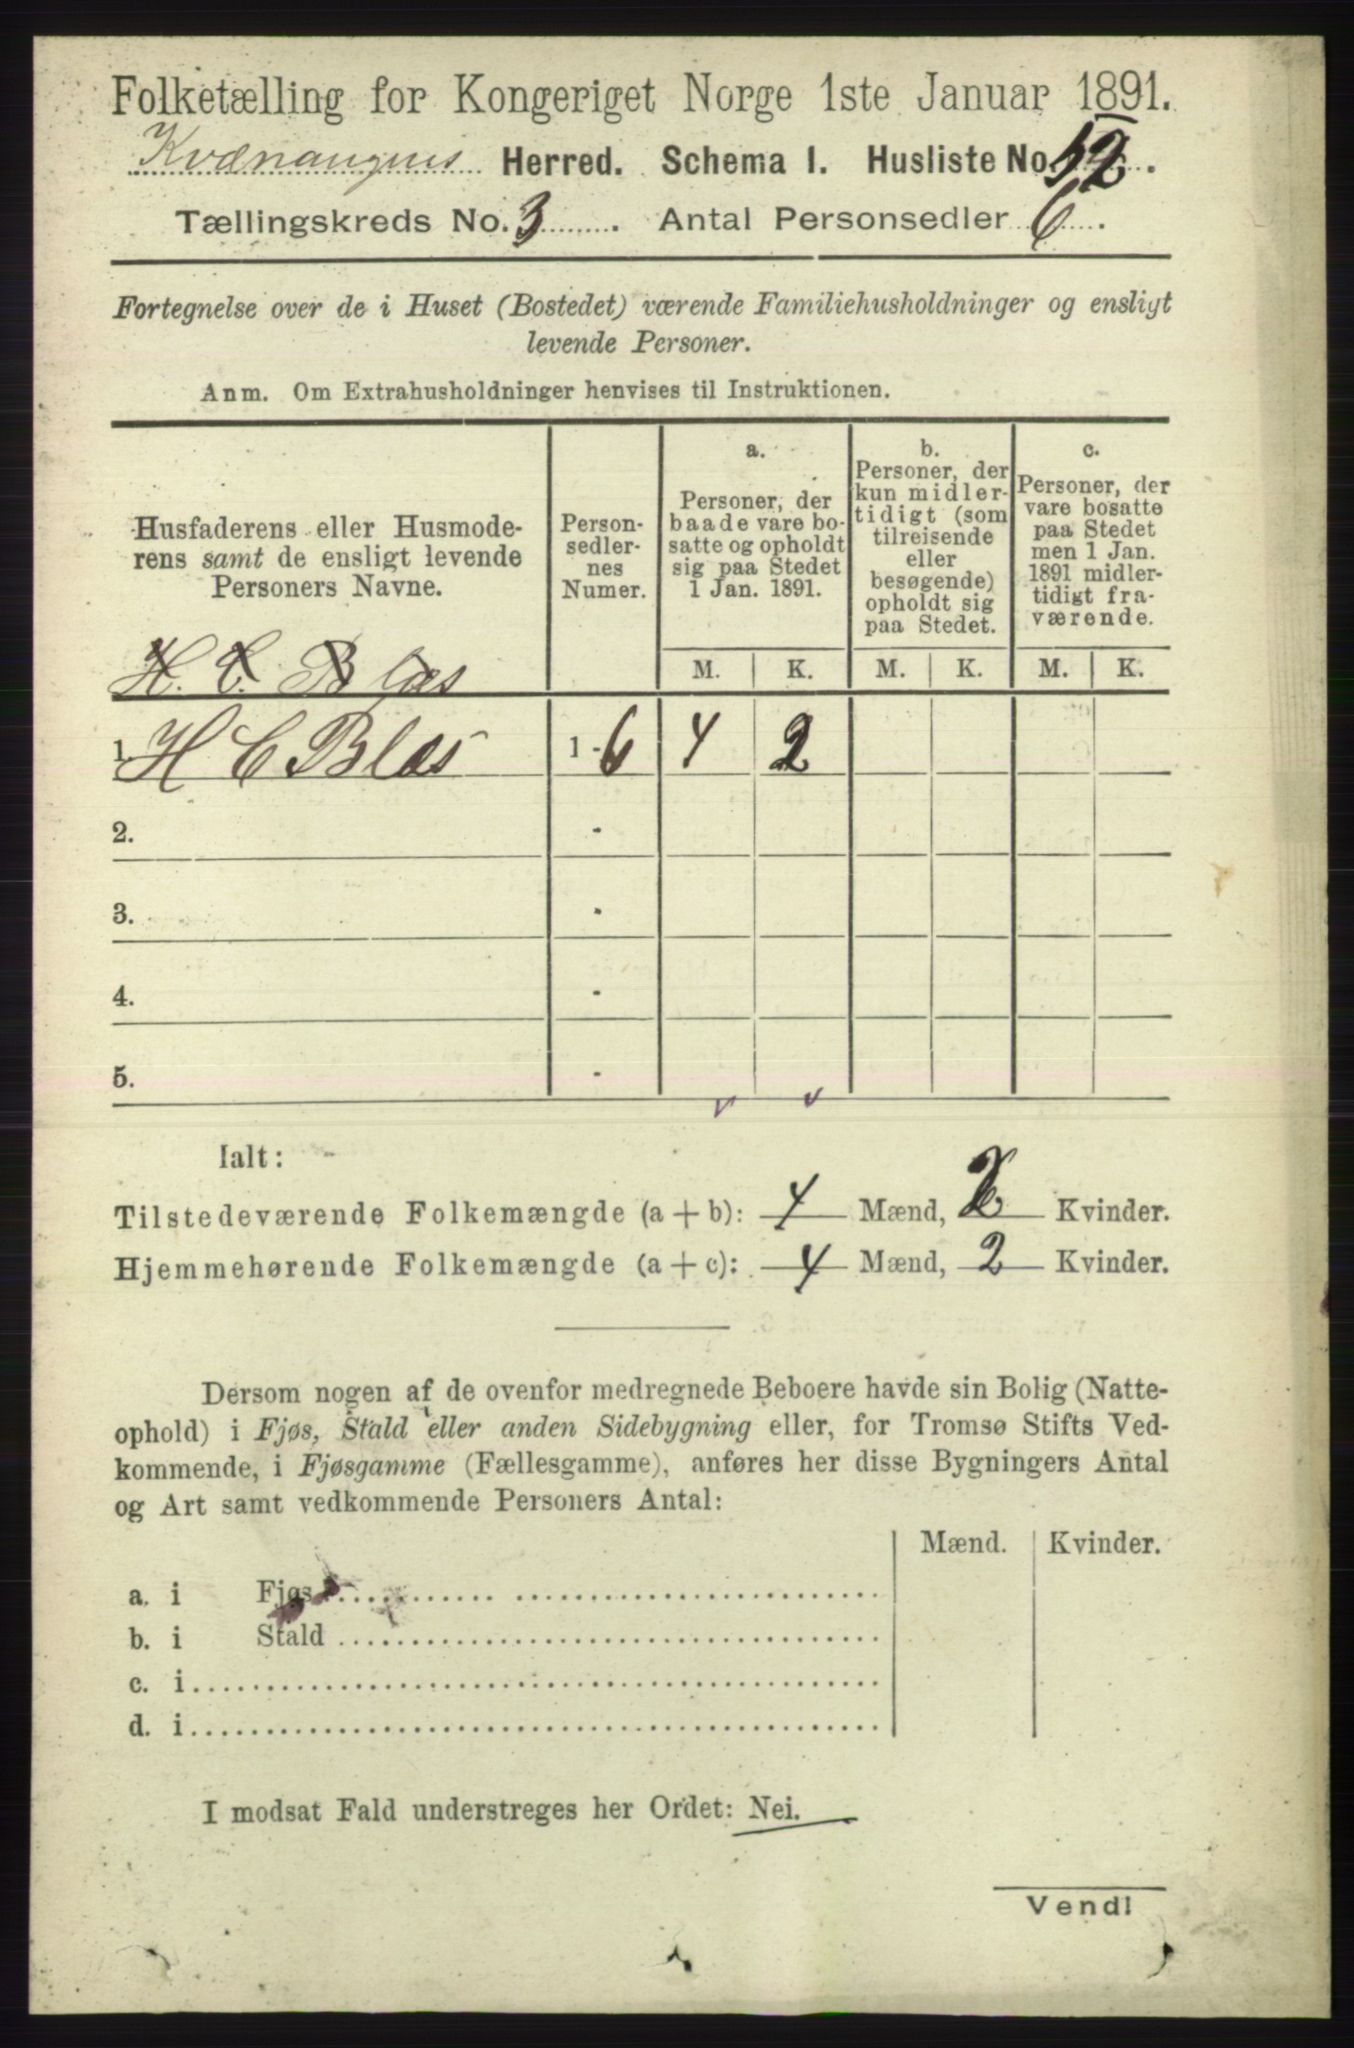 Folketælling for Kongeriget Norge 1ste Januar 1891.
Kvænangens Herred. Schema I. Husliste No. 52.
Tællingskreds No. 3. Antal Personsedler 6.
Fortegnelse over de i Huset (Bostedet) værende Familiehusholdninger og ensligt
levende Personer.
Anm. Om Extrahusholdninger henvises til Instruktionen.
Husfaderens eller Husmode-
rens samt de ensligt levende
Personers Navne.
Person-
sedler-
nes
Numer.
a.
Personer, der
baade vare bo-
satte og opholdt
sig paa Stedet
1 Jan. 1891.
b.
Personer, der
kun midler-
tidigt (som
tilreisende
eller
besøgende)
opholdt sig
paa Stedet.
c.
Personer, der
vare bosatte
paa Stedet
men 1 Jan.
1891 midler-
tidigt fra-
værende.
M. K. M. K. M. K.
H. C. Blæs
1. H C Blæs 1-6 4 2
2. -
3. -
4. -
5. -
Ialt:
Tilstedeværende Folkemængde (a + b): 4 Mænd, 2 Kvinder.
Hjemmehørende Folkemængde (a + c): 4 Mænd, 2 Kvinder.
Dersom nogen af de ovenfor medregnede Beboere havde sin Bolig (Natte-
ophold) i Fjøs, Stald eller anden Sidebygning eller, for Tromsø Stifts Ved-
kommende, i Fjøsgamme (Fællesgamme), anføres her disse Bygningers Antal
og Art samt vedkommende Personers Antal:
Mænd. Kvinder.
a. i Fjøs
b. i Stald
c. i
d. i
I modsat Fald understreges her Ordet: Nei.
Vend!